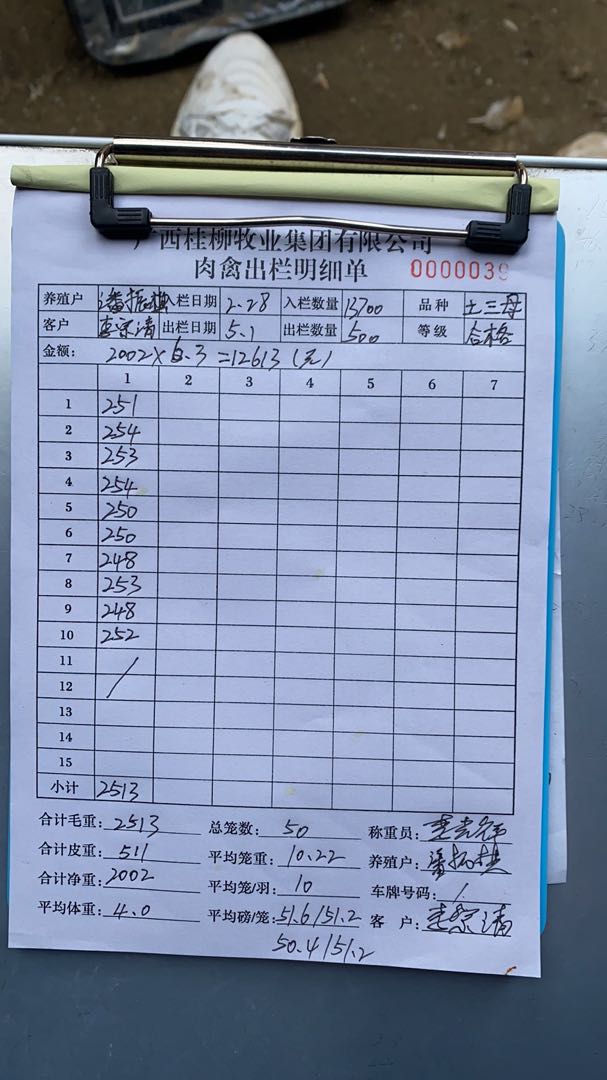 广西桂柳牧业集团有限公司
肉禽出栏明细单 0000039
养殖户 潘振 入栏日期 2.28 入栏数量 13700 品种 土三母
客户 出栏日期 5.1 出栏数量 500 等级 合格
金额: 2002×6.3=12613(元)
1 2 3 4 5 6 7
1 251
2 254
3 253
4 254
5 250
6 250
7 248
8 253
9 248
10 252
11
12 /
13
14
15
小计 2513
合计毛重: 2513 总笼数: 50 称重员:
合计皮重: 511 平均笼重: 10.22 养殖户: 潘振
合计净重: 2002 平均笼/羽: 10 车牌号码: /
平均体重: 4.0 平均磅/笼: 51.6/51.2 客 户:
50.4/51.2